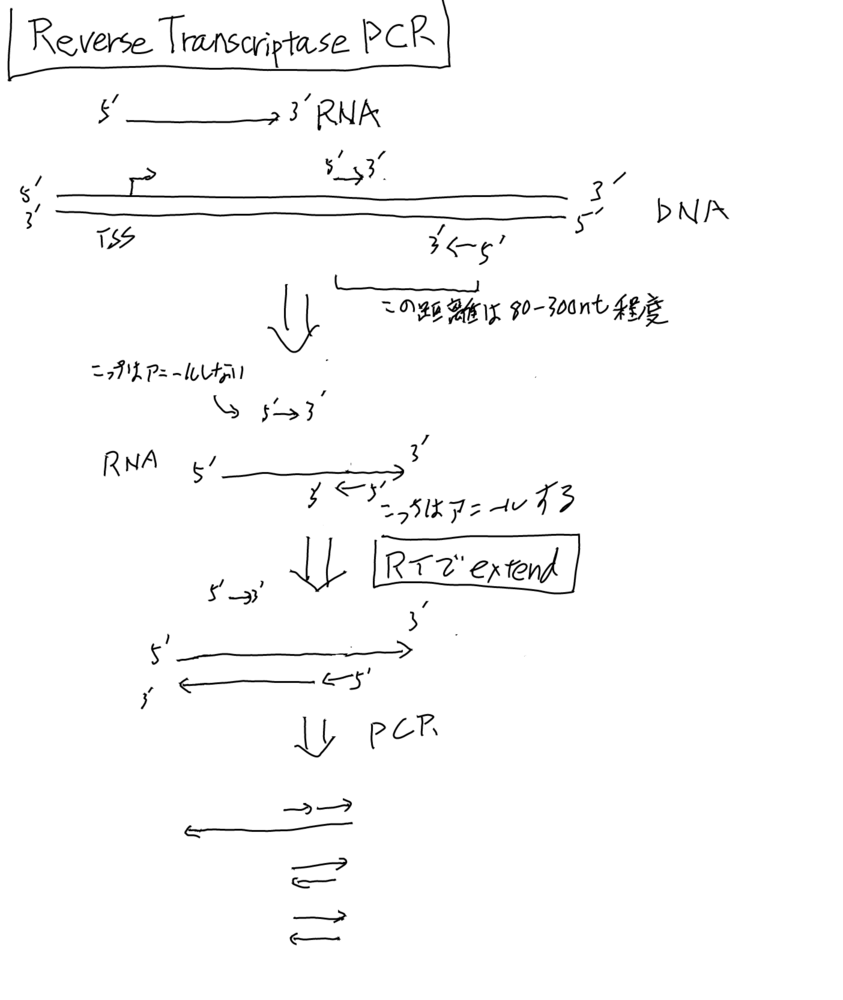 Reverse Transcriptase PCR
5' 3' RNA
5' 3'
5' 3'
3' 5' DNA
TSS
3' 5'
この距離は80-300nt程度
こっちはアニールしない
5' 3'
RNA 5' 3'
3' 5'
こっちはアニールする
RTでextend
5' 3'
5' 3'
3' 5'
PCR